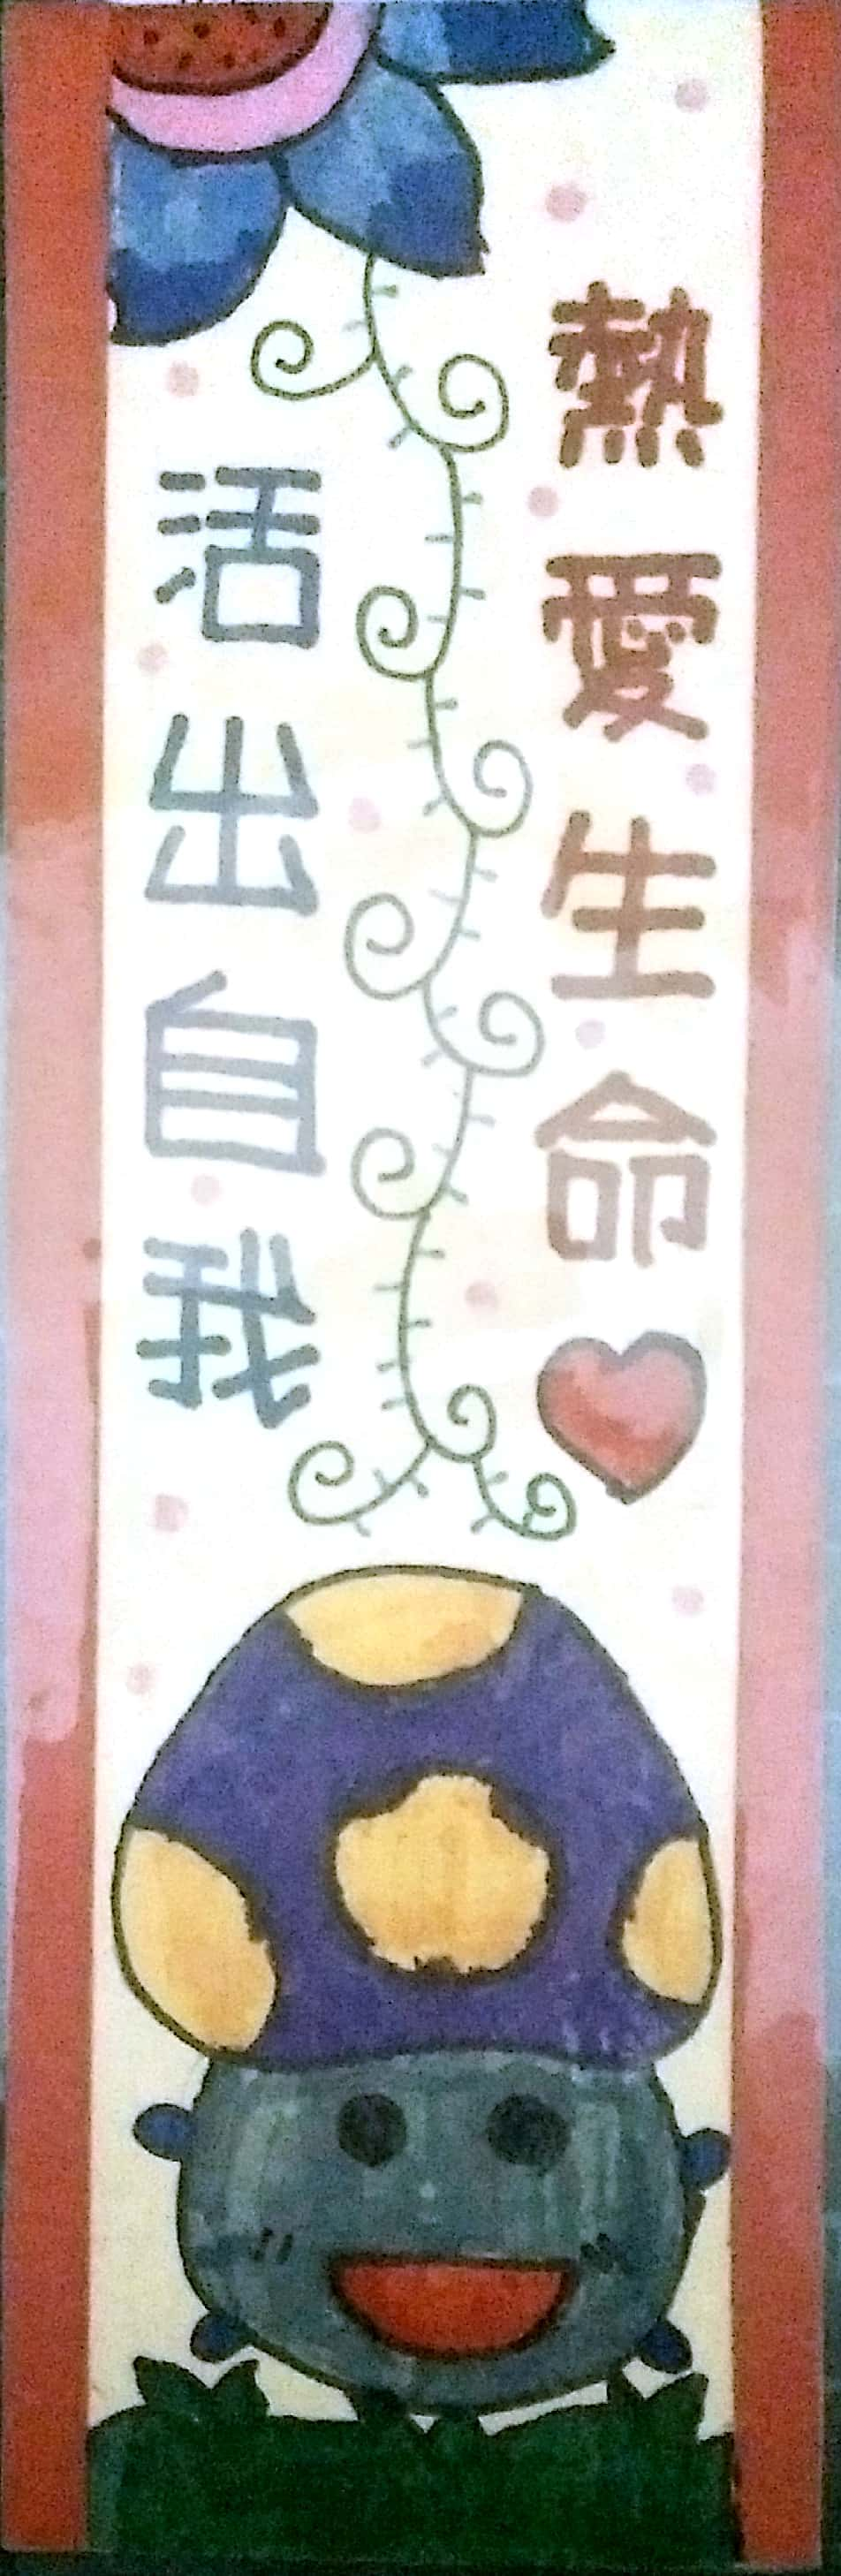 熱愛生命
活出自我